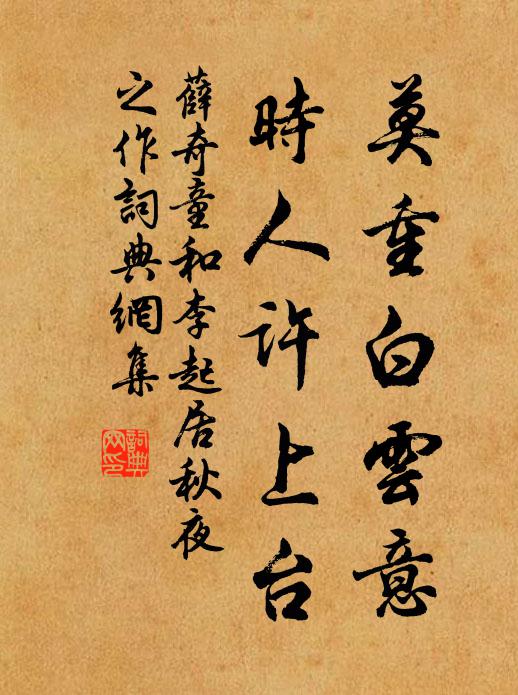 莫重白雲意
時人許上台
薛奇童和李起居秋夜
之作詞典網集
詞典網印